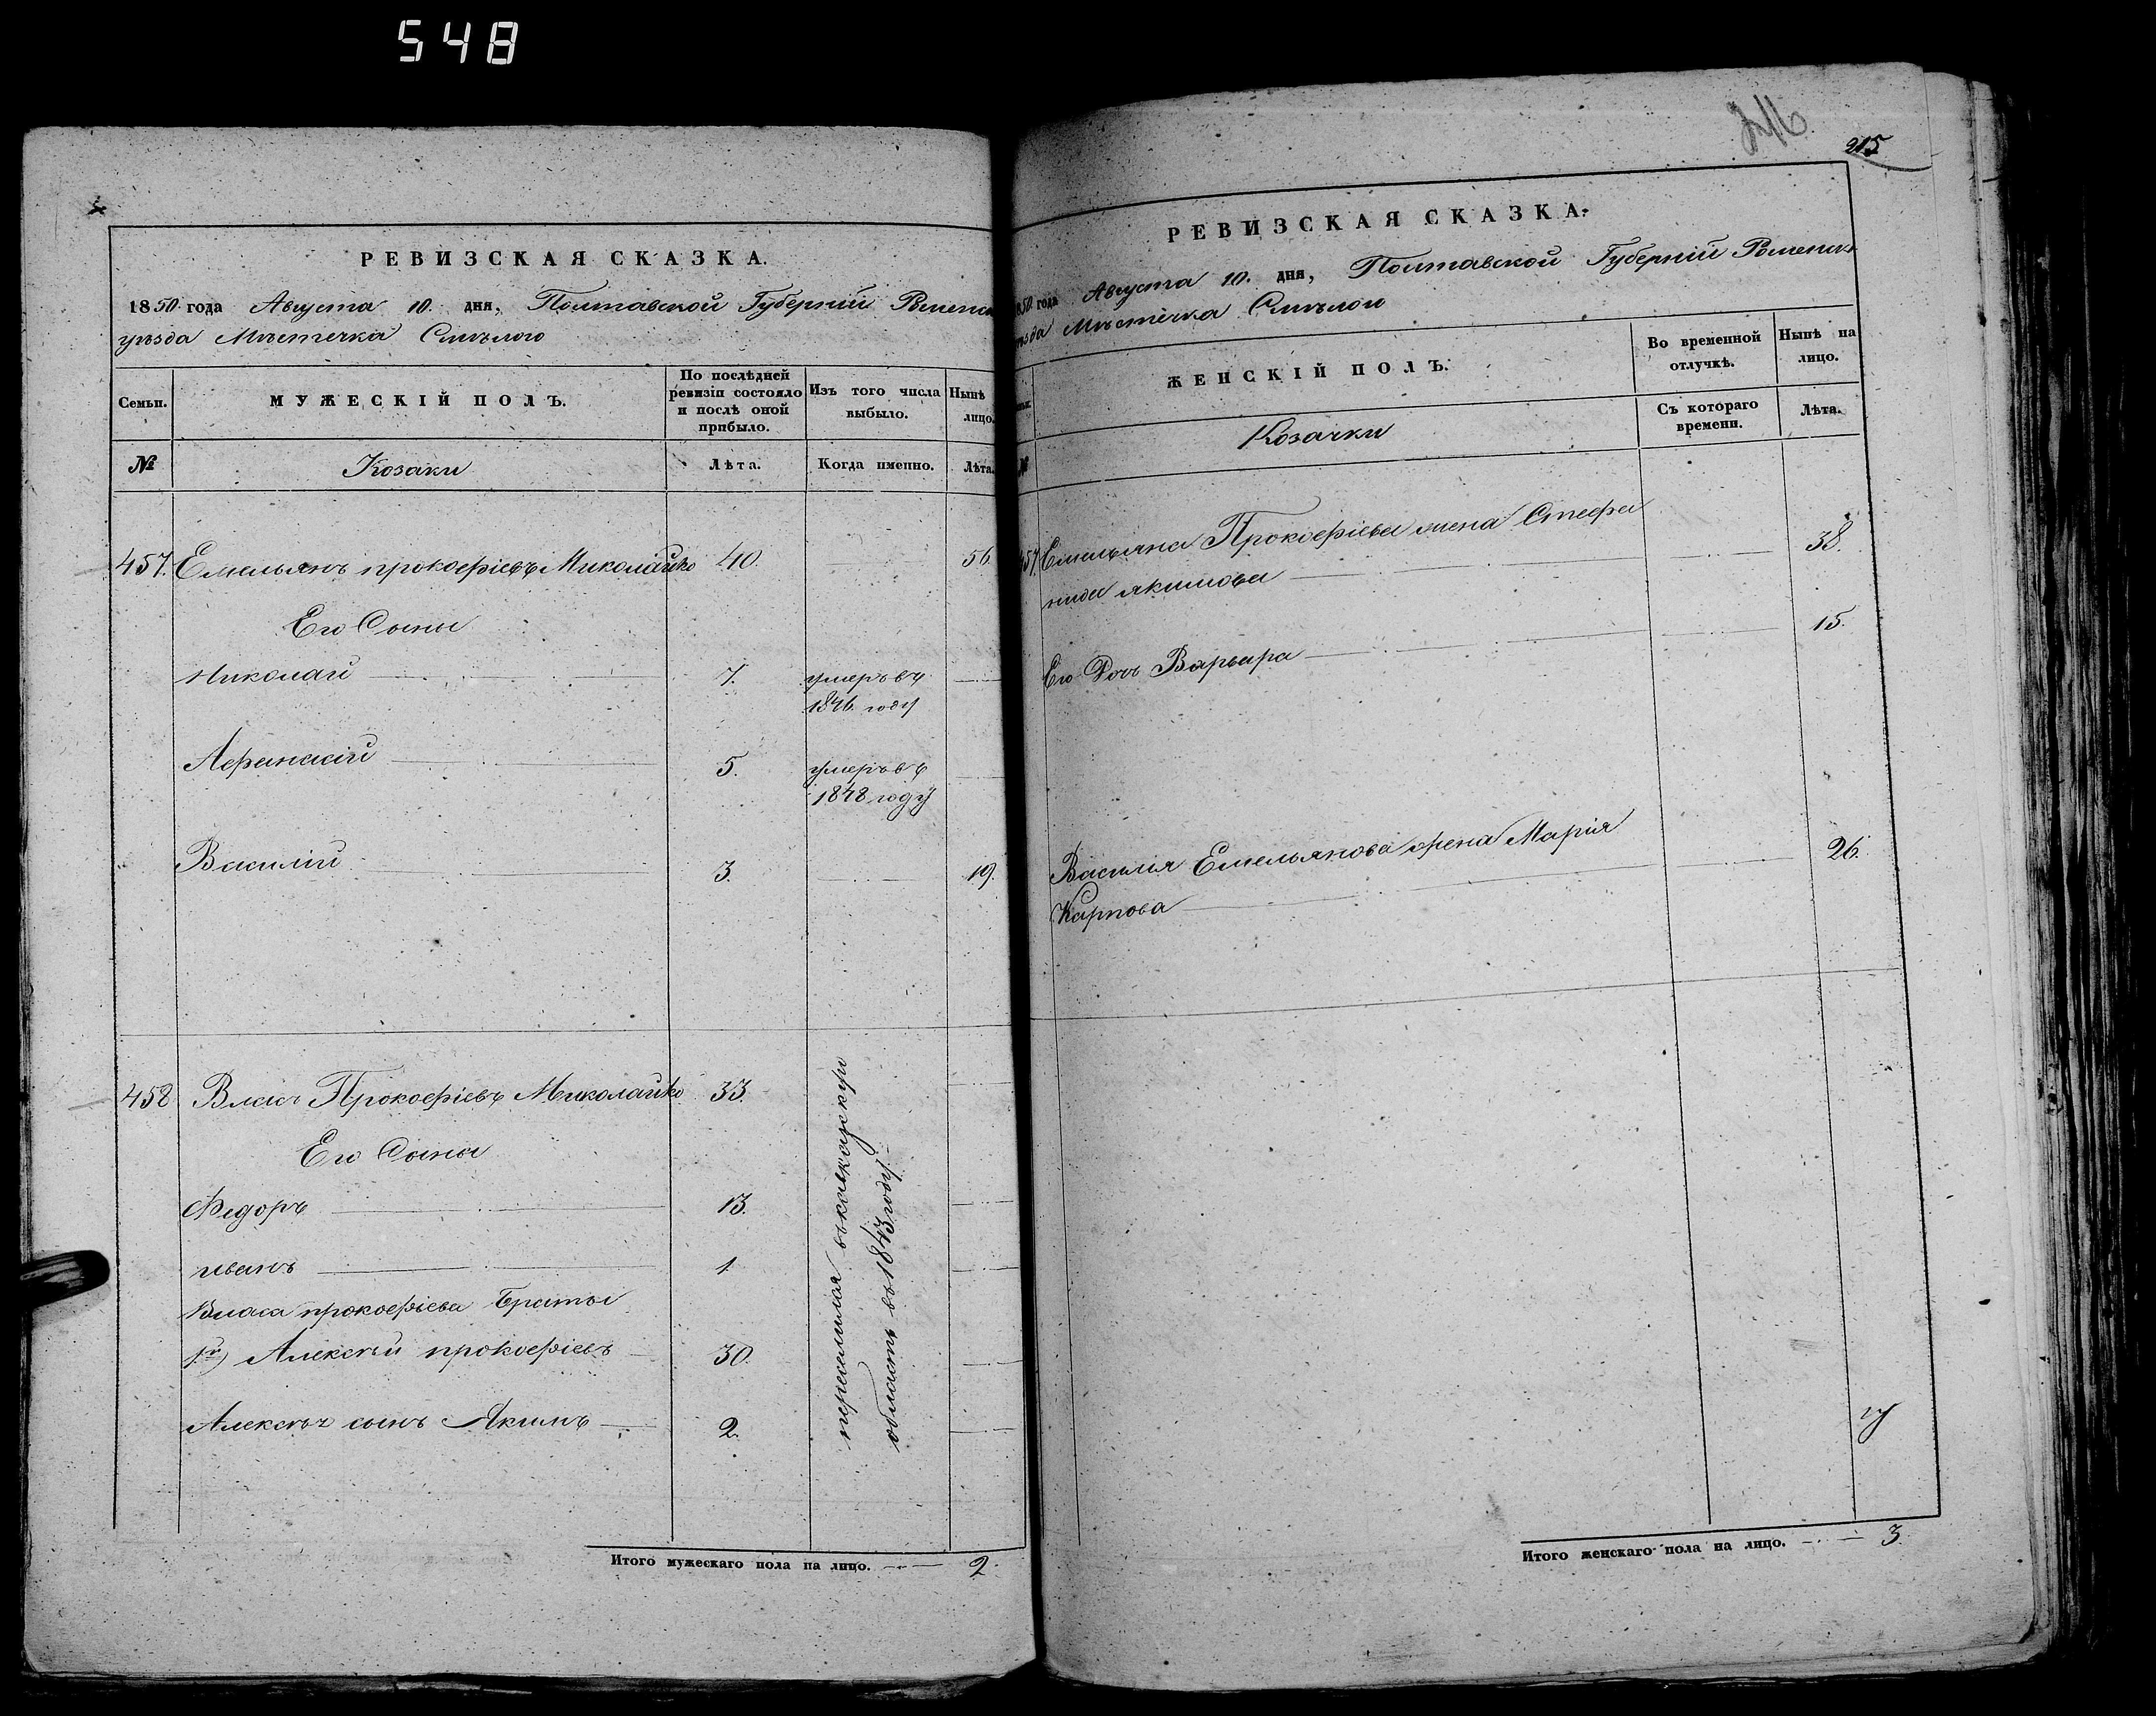 548
РЕВИЗСКАЯ СКАЗКА.
1850 года Августа 10. дня, Полтавской Губерніи Роменск
уѣзда Мѣстечка Смѣлого
Семьи.
МУЖЕСКІЙ ПОЛЪ.
По послѣдней
ревизіи состояло
и послѣ оной
прибыло.
Изъ того числа
выбыло.
Нынѣ
лицо.
№
Козаки
Лѣта.
Когда именно.
Лѣта.
457. Емельянъ прокофіевъ Миколайко 40. 56
Его Сыны
Николай 7. умеръ въ
1846. году
Афанасій 5. умеръ въ
1848 году
Василій 3. 19.
458 Власъ Прокофіевъ Миколайко 33.
Его Сыны
Федоръ 13.
иванъ 1
Власа прокофіева братья
1й) Алексѣй прокофіевъ 30.
Алексѣя сынъ Якимъ 2.
переселился въ кавказскую
область въ 1843 году.
Итого мужескаго пола на лицо. 2
246.
215
РЕВИЗСКАЯ СКАЗКА.
1850 года Августа 10. дня, Полтавской Губерніи Роменск
уѣзда Мѣстечка Смѣлои
ЖЕНСКІЙ ПОЛЪ.
Во временной
отлучкѣ.
Нынѣ на
лицо.
Съ котораго
времени.
Лѣта.
№
Козачки
457. Емельяна Прокофіева жена Стефа
нида якимова 38.
Его Дочь Варвара 15.
Василія Емельянова жена Марія
Карпова 26.
Итого женскаго пола на лицо. 3.